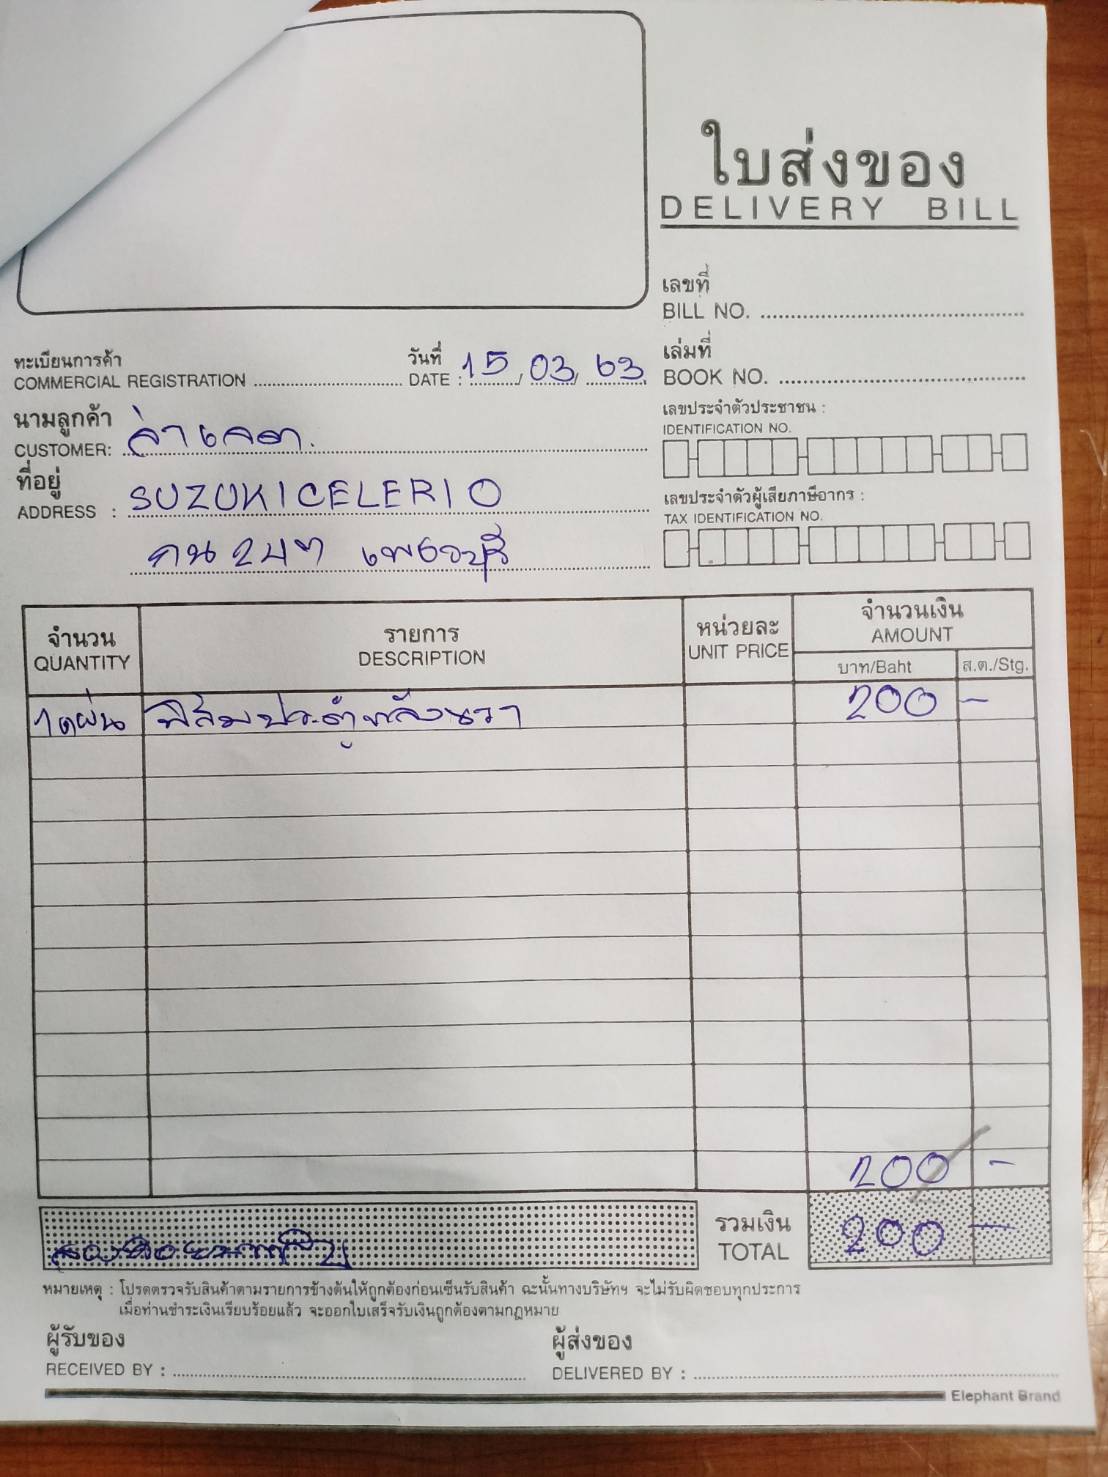 ใบส่งของ
DELIVERY BILL
เลขที่
BILL NO.
ทะเบียนการค้า
COMMERCIAL REGISTRATION
วันที่
DATE : 15 / 03 / 63
เล่มที่
BOOK NO.
นามลูกค้า
CUSTOMER:
เลขประจำตัวประชาชน :
IDENTIFICATION NO.
ที่อยู่
ADDRESS : SUZUKI CELERIO
เลขประจำตัวผู้เสียภาษีอากร :
TAX IDENTIFICATION NO.
กน 247 เพชรบุรี
จำนวน
QUANTITY
รายการ
DESCRIPTION
หน่วยละ
UNIT PRICE
จำนวนเงิน
AMOUNT
บาท/Baht
ส.ต./Stg.
1 แผ่น ฟิล์มประตูหลังขวา 200 -
200 -
สองร้อยบาทถ้วน
รวมเงิน
TOTAL
200 -
หมายเหตุ : โปรดตรวจรับสินค้าตามรายการข้างต้นให้ถูกต้องก่อนเซ็นรับสินค้า ฉะนั้นทางบริษัทฯ จะไม่รับผิดชอบทุกประการ
เมื่อท่านชำระเงินเรียบร้อยแล้ว จะออกใบเสร็จรับเงินถูกต้องตามกฎหมาย
ผู้รับของ
RECEIVED BY :
ผู้ส่งของ
DELIVERED BY :
Elephant Brand